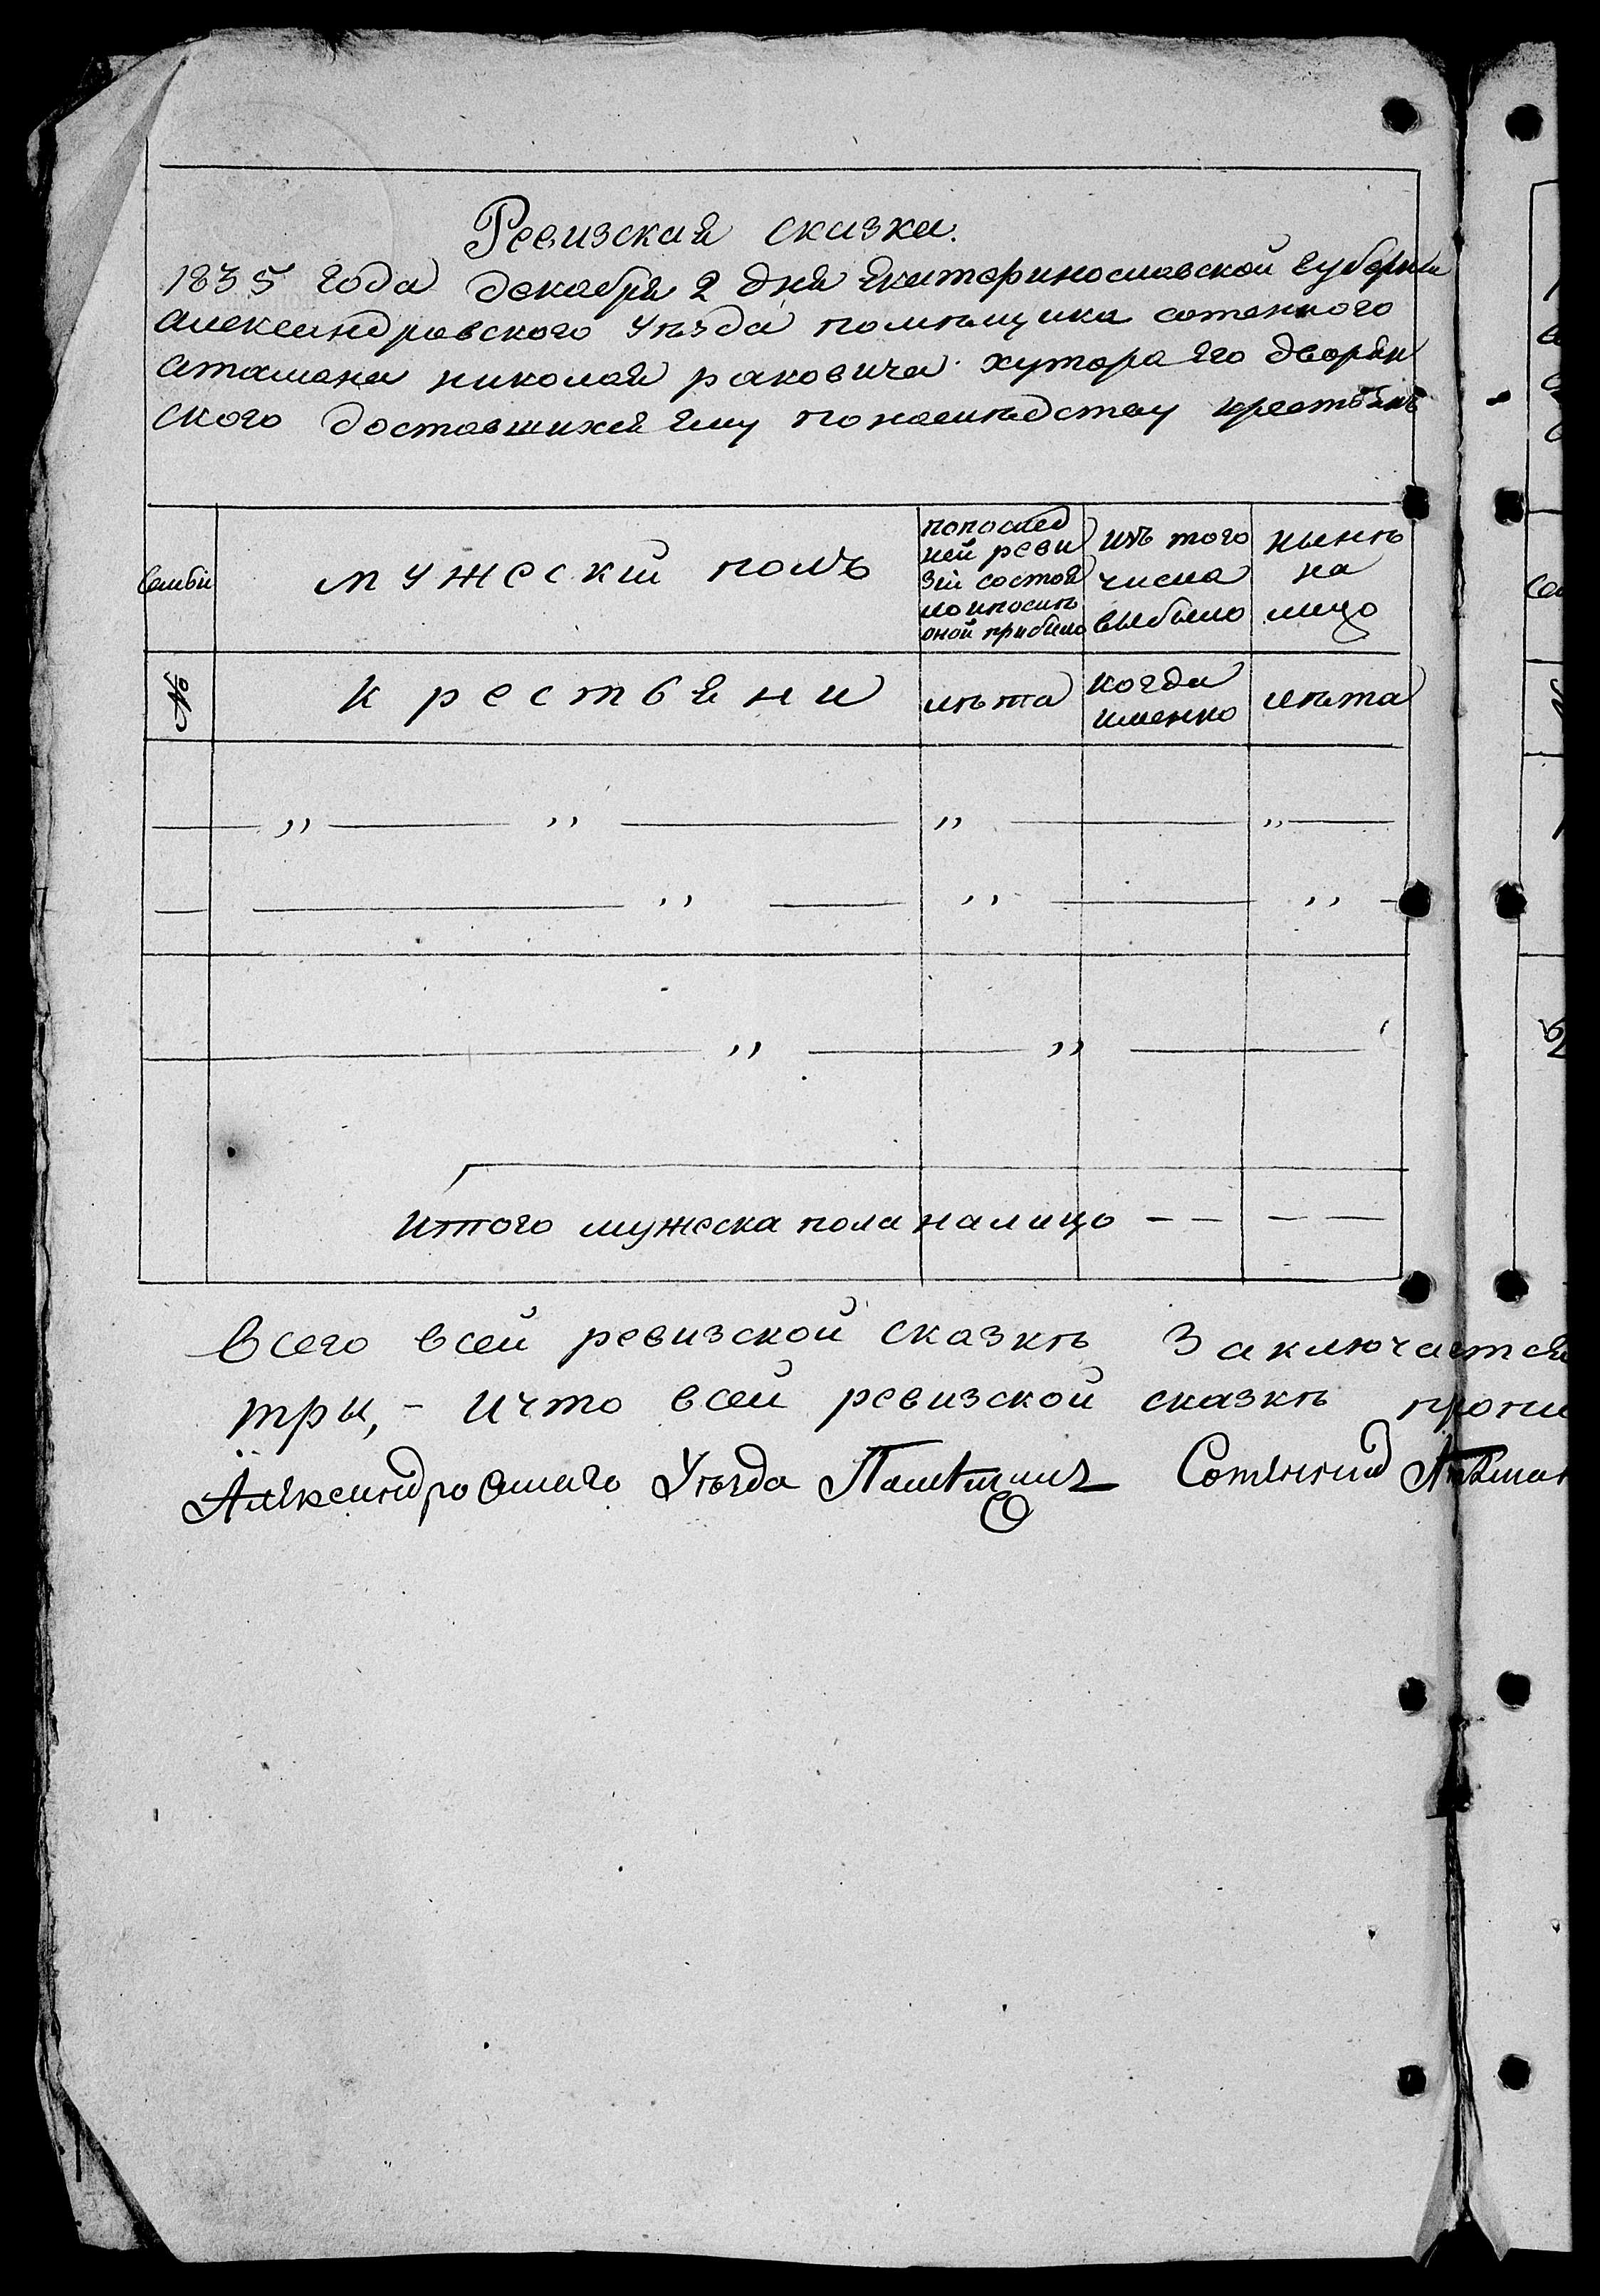 Ревизская сказка.
1835 года декабря 2 дня Екатеринославской губерніи
александровского уѣзда помѣщика сотенного
атамана николая раковича хутора его дворян
ского доставшихся ему понаслѣдству крестьянъ
Семьи
мужеский полъ
попослед
ней реви
зіи состоя
ло ипослѣ
оной прибыло
изъ того
числа
выбыло
нынѣ
на
лицо
№
крестьяни
лѣта
когда
именно
лѣта
Итого мужеска пола налицо — — — —
Всего всей ревизской сказкѣ Заключается
тры, - ичто всей ревизской сказкѣ
Александровскаго Уѣзда Помѣщикъ Сотенный Атаман